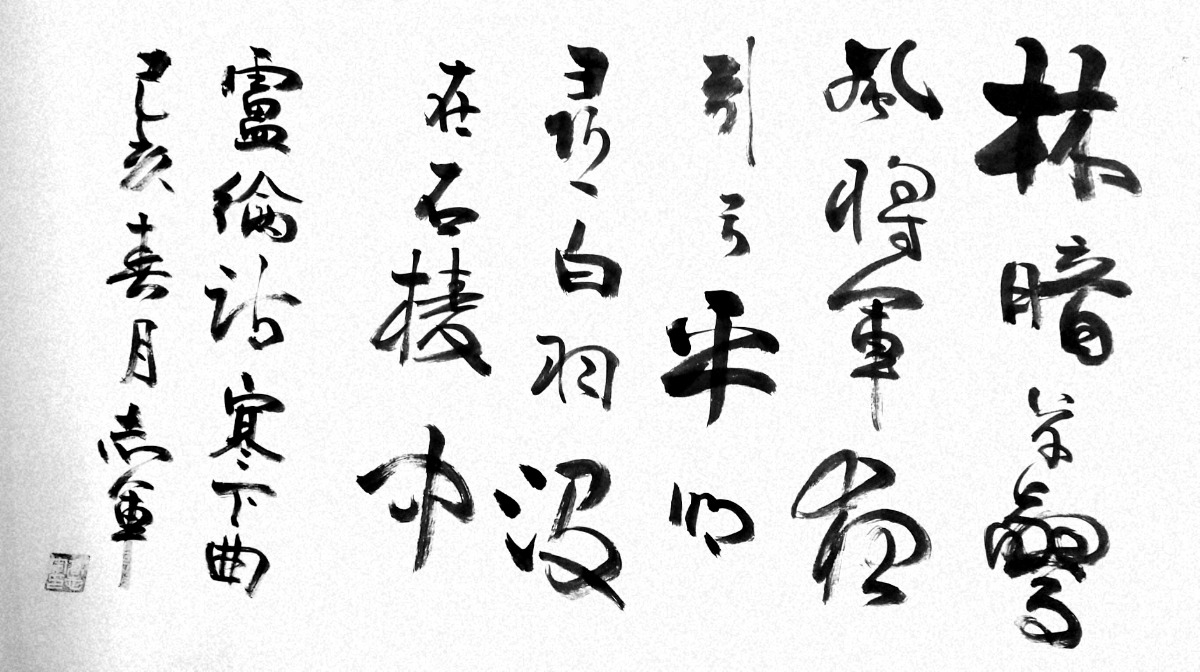 林暗草驚
風將軍夜
引弓平明
尋白羽沒
在石棱中
盧綸詩寒下曲
己亥春月志軍